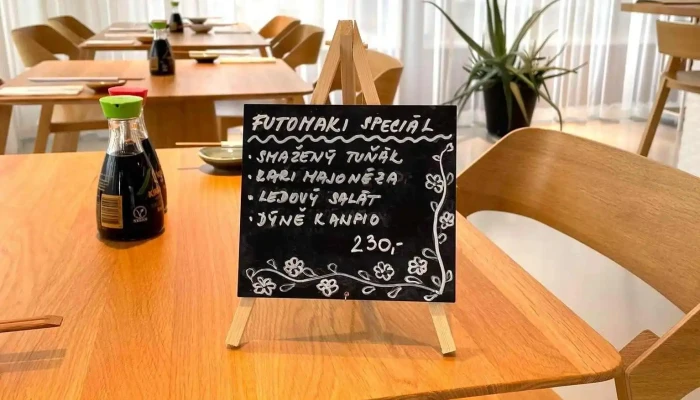 FUTOMAKI SPECIÁL
• SMAŽENÝ TUŇÁK
• KARI MAJONÉZA
• LEDOVÝ SALÁT
• DÝNĚ KANPIO
230,-